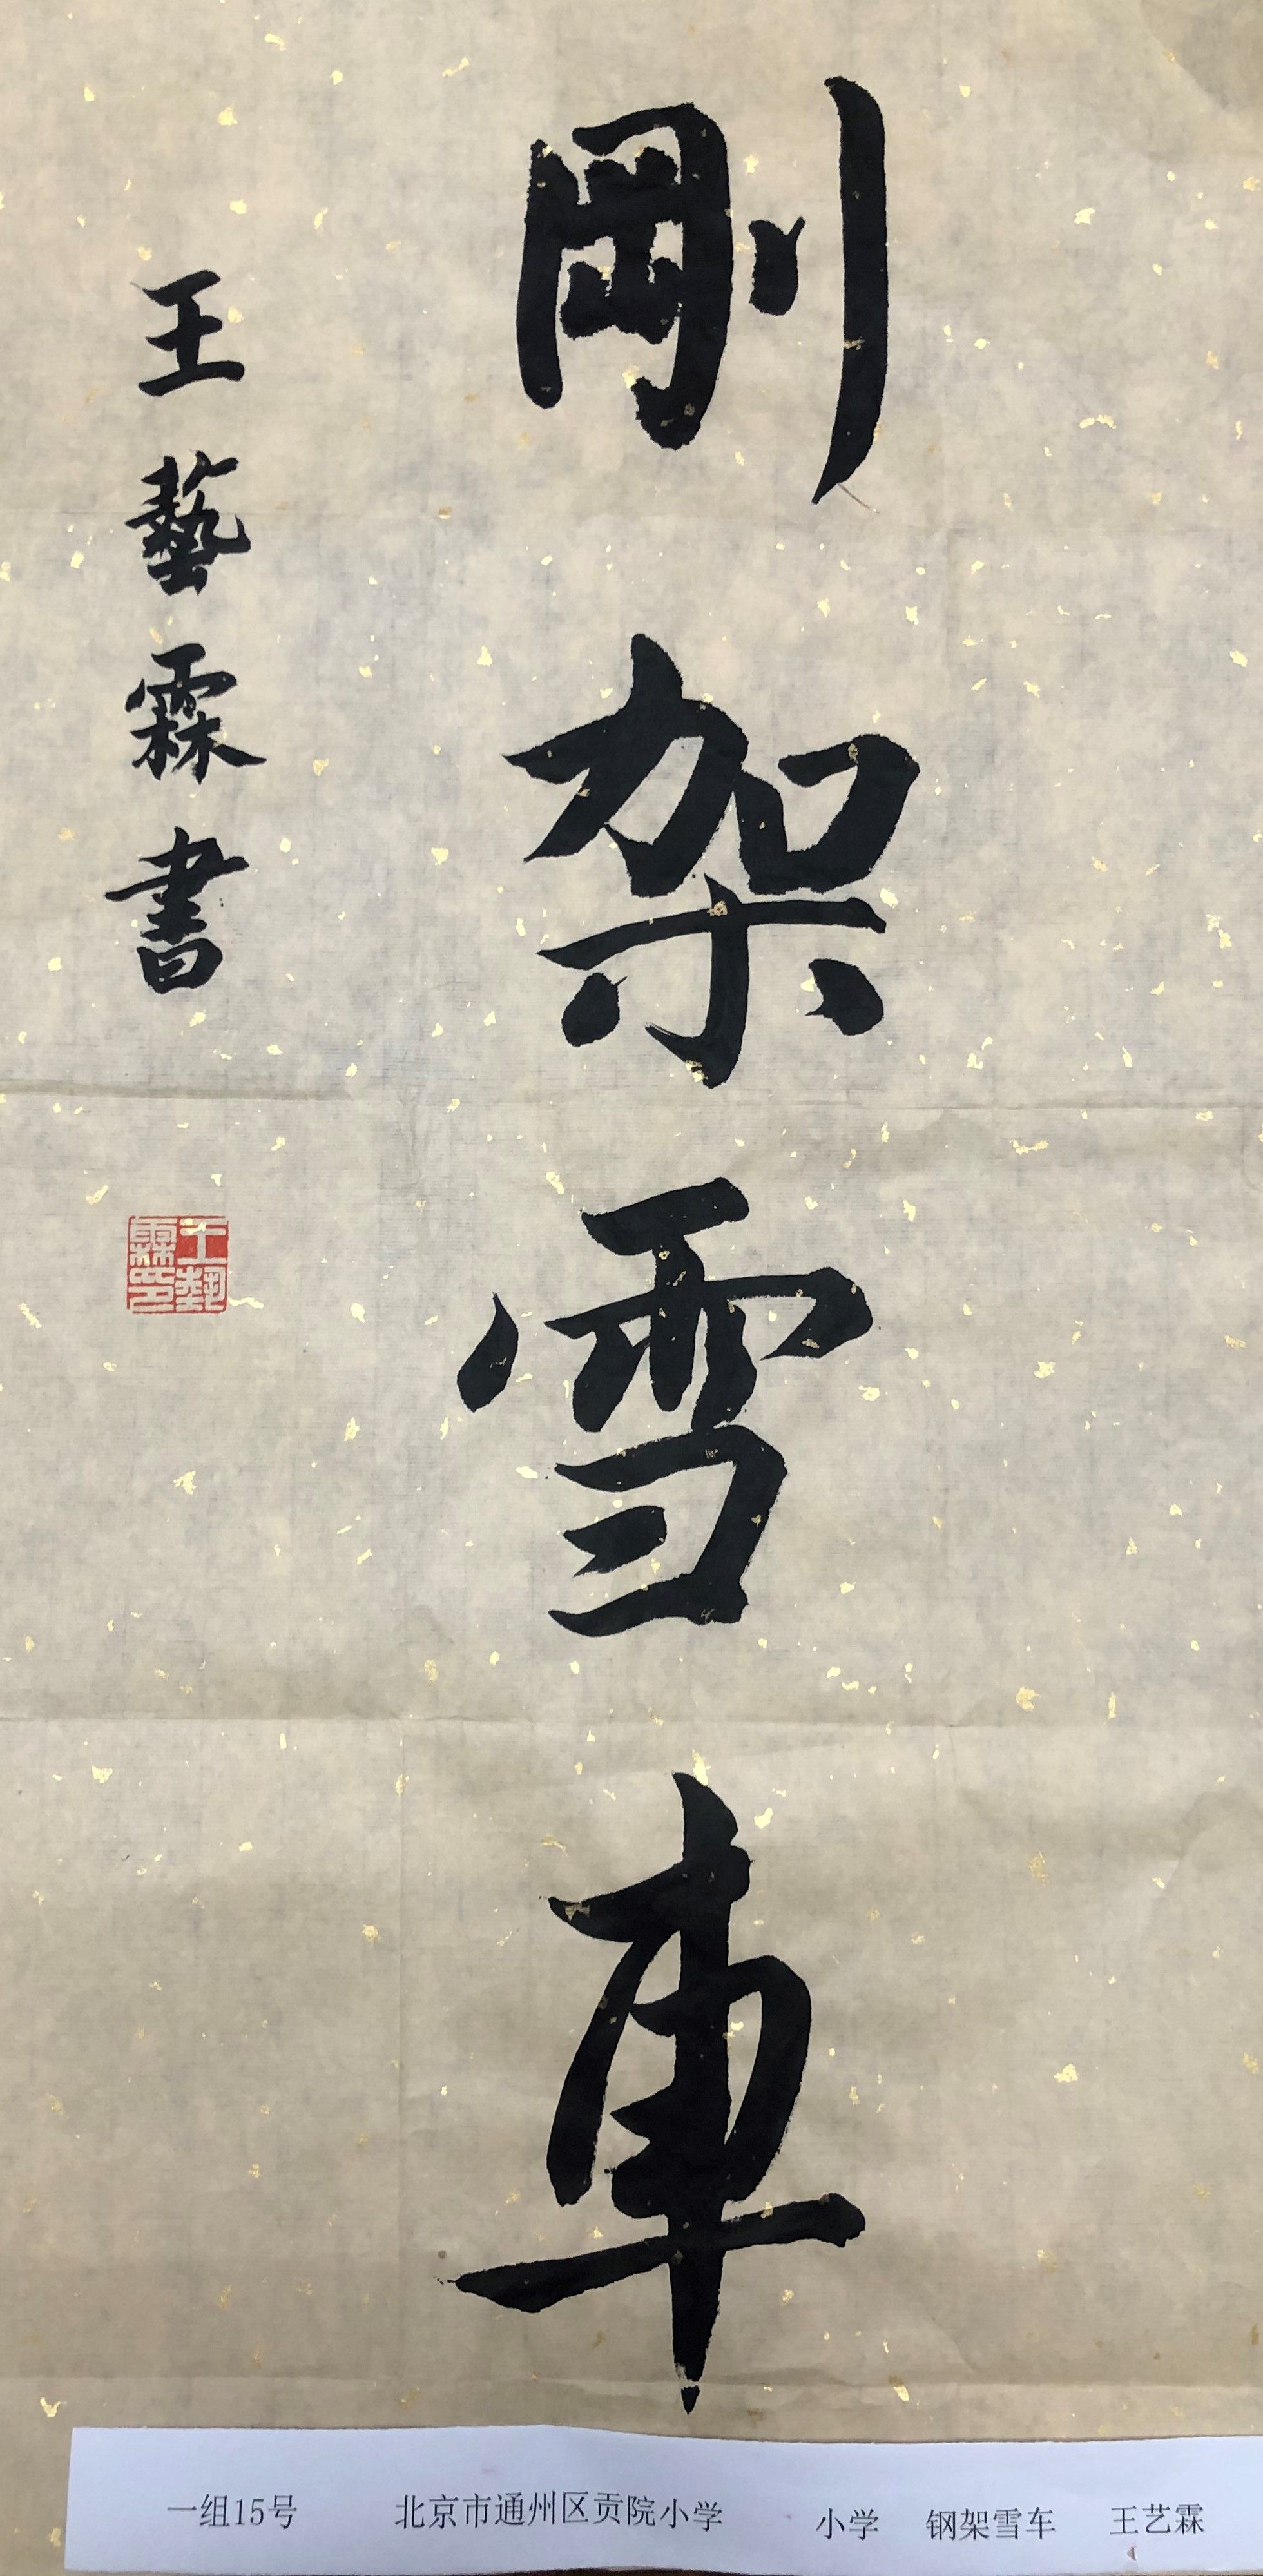 剛架雪車
王藝霖書
王藝霖印
一组15号 北京市通州区贡院小学 小学 钢架雪车 王艺霖